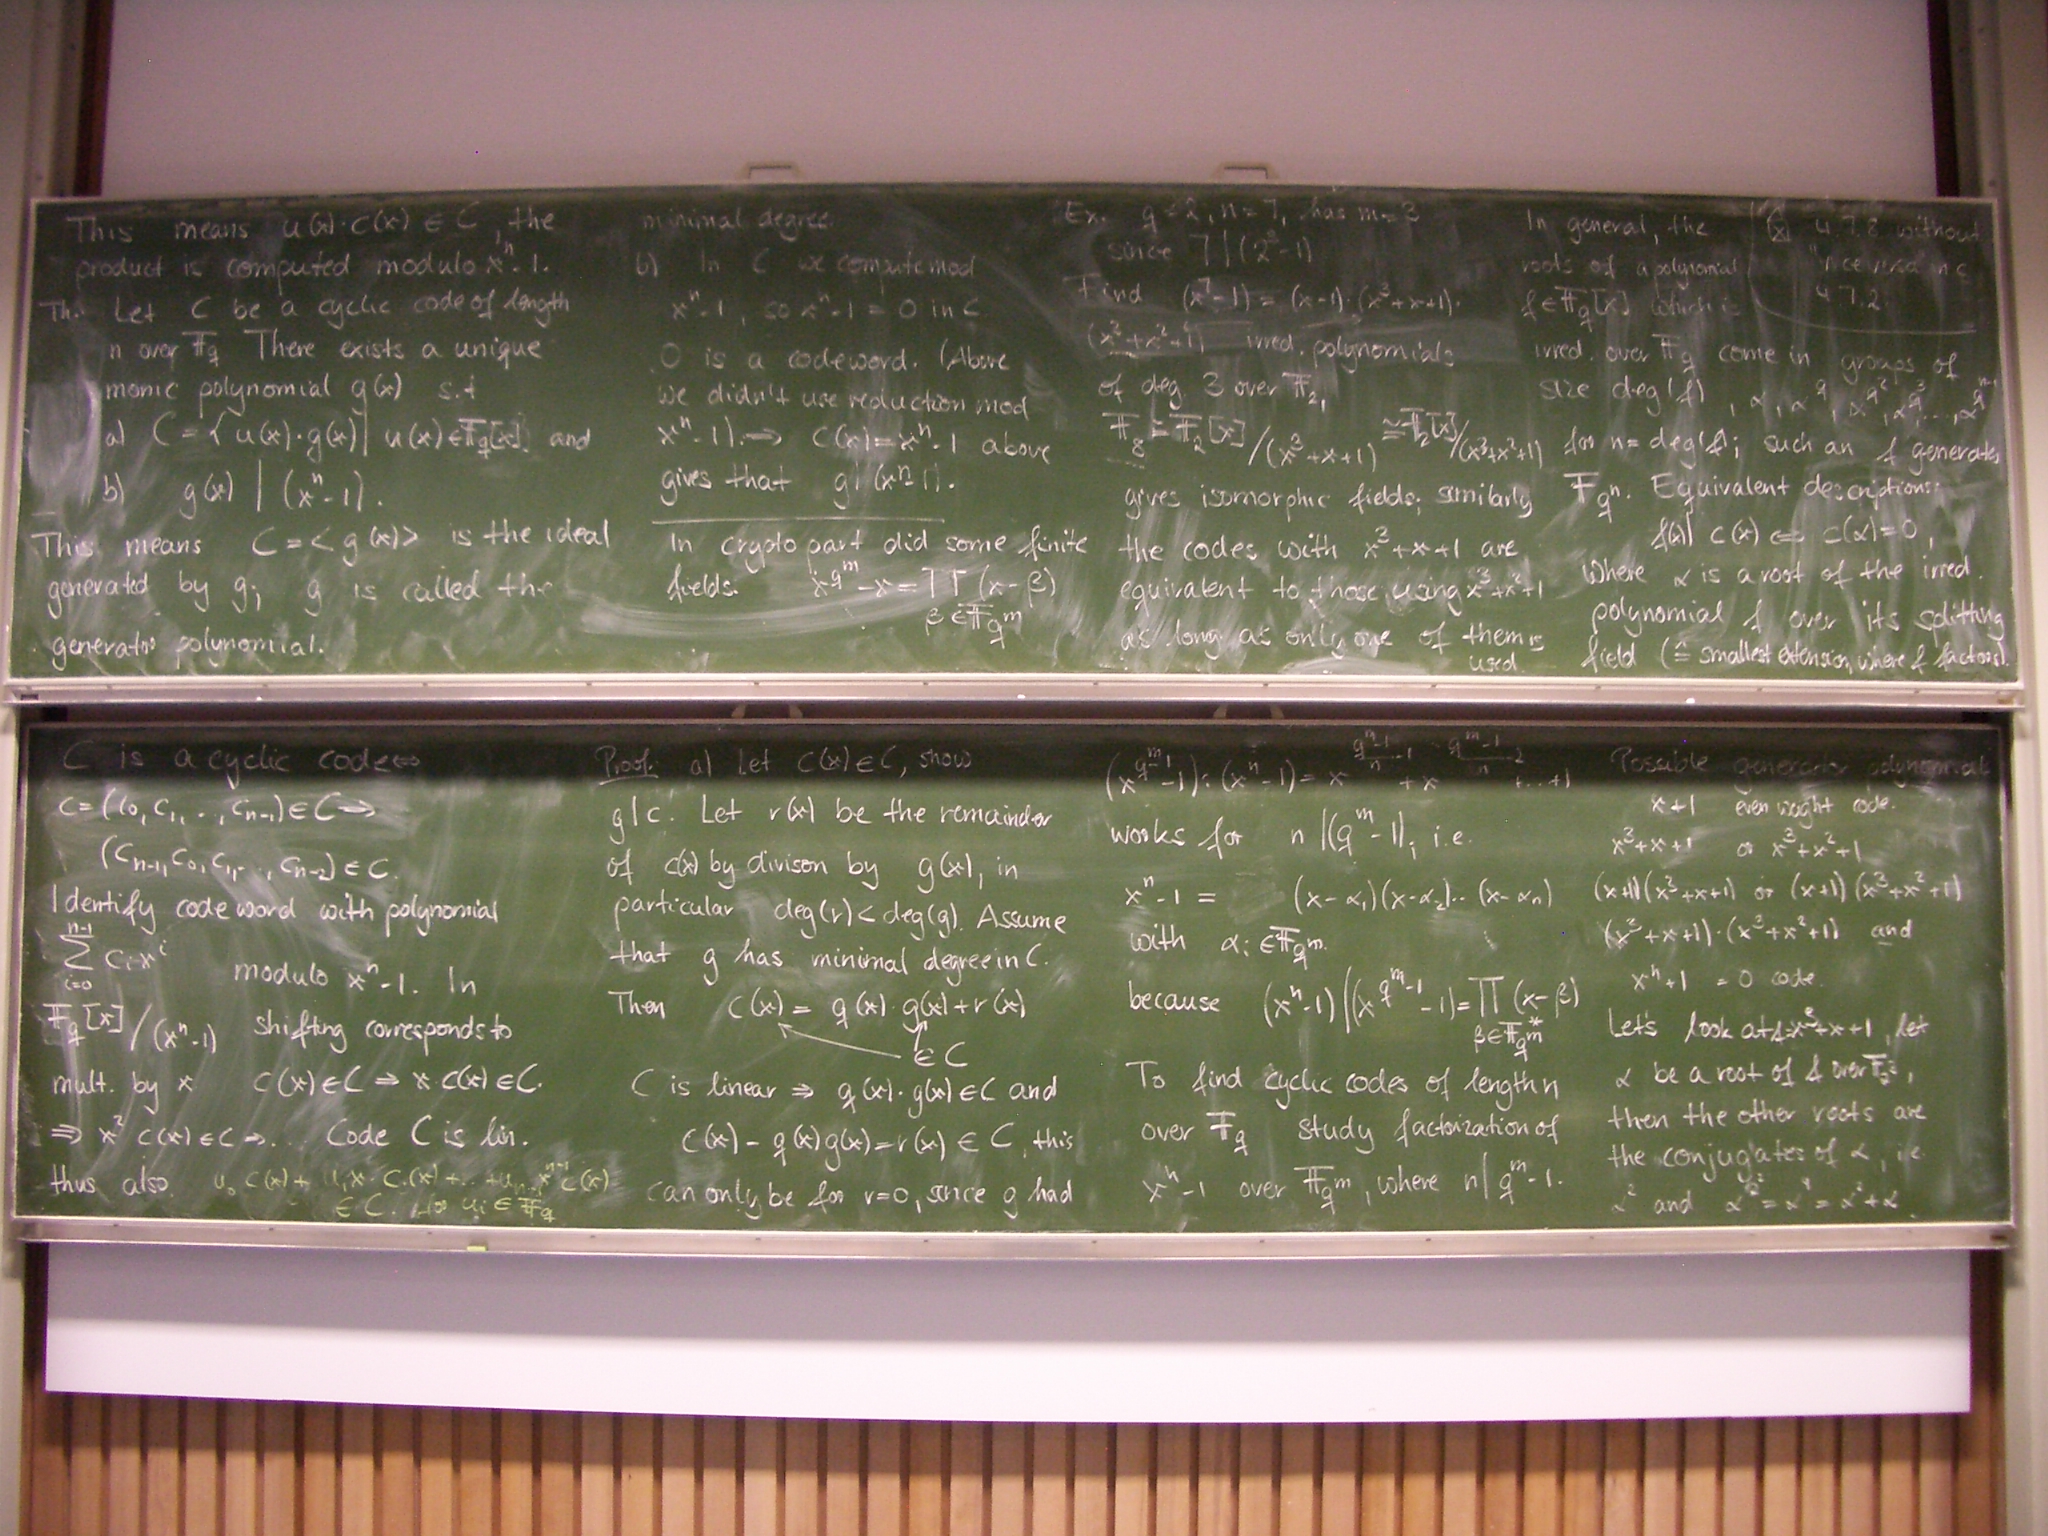 This means u(x)·c(x) ∈ C, the
product is computed modulo xⁿ-1.
Th. Let C be a cyclic code of length
n over 𝔽q There exists a unique
monic polynomial g(x) s.t
a) C = { u(x)·g(x) | u(x) ∈ 𝔽q[x] and
b) g(x) | (xⁿ-1).
This means C = <g(x)> is the ideal
generated by g; g is called the
generator polynomial.
minimal degree.
b) In C we compute mod
xⁿ-1, so xⁿ-1 = 0 in C
0 is a codeword. (Above
we didn't use reduction mod
xⁿ-1). ⇒ c(x) = xⁿ-1 above
gives that g | (xⁿ-1).
In crypto part did some finite
fields. x^(q^m) - x = ∏ (x-β)
β ∈ 𝔽q^m
Ex. q=2, n=7, has m=3
since 7 | (2³-1)
Find (x⁷-1) = (x-1)·(x³+x+1)·
(x³+x²+1) irred. polynomials
of deg. 3 over 𝔽₂,
𝔽₈ ≅ 𝔽₂[x]/(x³+x+1) ≅ 𝔽₂[x]/(x³+x²+1)
gives isomorphic fields; similarly
the codes with x³+x+1 are
equivalent to those using x³+x²+1
as long as only one of them is
used.
In general, the
roots of a polynomial
f ∈ 𝔽q[x] which is
irred. over 𝔽q come in groups of
size deg(f), α, α^q, α^(q²), α^(q³), ..., α^(q^(n-1))
for n = deg(f); such an f generates
𝔽qⁿ. Equivalent descriptions:
f(x) | c(x) ⇔ c(α)=0,
where α is a root of the irred.
polynomial f over its splitting
field (≙ smallest extension, where f factors).
4.7.8 without
4.7.2
C is a cyclic code ⇔
c = (c₀, c₁, .., cₙ₋₁) ∈ C ⇒
(cₙ₋₁, c₀, c₁, .., cₙ₋₂) ∈ C.
Identify code word with polynomial
∑_(i=0)^(n-1) cᵢxⁱ modulo xⁿ-1. In
𝔽q[x]/(xⁿ-1) shifting corresponds to
mult. by x c(x) ∈ C ⇒ x c(x) ∈ C.
⇒ x² c(x) ∈ C ⇒ ... Code C is lin.
thus also u₀ c(x) + u₁x·c(x) + .. + uₙ₋₁xⁿ⁻¹c(x)
∈ C. for uᵢ ∈ 𝔽q
Proof: a) Let c(x) ∈ C, show
g|c. Let r(x) be the remainder
of c(x) by divison by g(x), in
particular deg(r) < deg(g). Assume
that g has minimal degree in C.
Then c(x) = q(x)·g(x) + r(x)
∈ C
C is linear ⇒ q(x)·g(x) ∈ C and
c(x) - q(x)g(x) = r(x) ∈ C, this
can only be for r=0, since g had
(x^(q^m-1) -1) : (xⁿ-1) = x^((q^m-1)/n -1) + x^((q^m-1)/n -2) ... +1
works for n | (q^m-1), i.e.
xⁿ-1 = (x-α₁)(x-α₂)··(x-αₙ)
with αᵢ ∈ 𝔽q^m.
because (xⁿ-1) | (x^(q^m-1) -1) = ∏ (x-β)
β ∈ 𝔽*q^m
To find cyclic codes of length n
over 𝔽q study factorization of
xⁿ-1 over 𝔽q^m, where n | q^m-1.
Possible generator polynomial
x+1 even weight code.
x³+x+1 or x³+x²+1
(x+1)(x³+x+1) or (x+1)(x³+x²+1)
(x³+x+1)·(x³+x²+1) and
xⁿ+1 = 0 code.
Let's look at f=x³+x+1, let
α be a root of f over
then the other roots are
the conjugates of α, i.e.
α² and α^(2²) = α⁴ = α²+α.